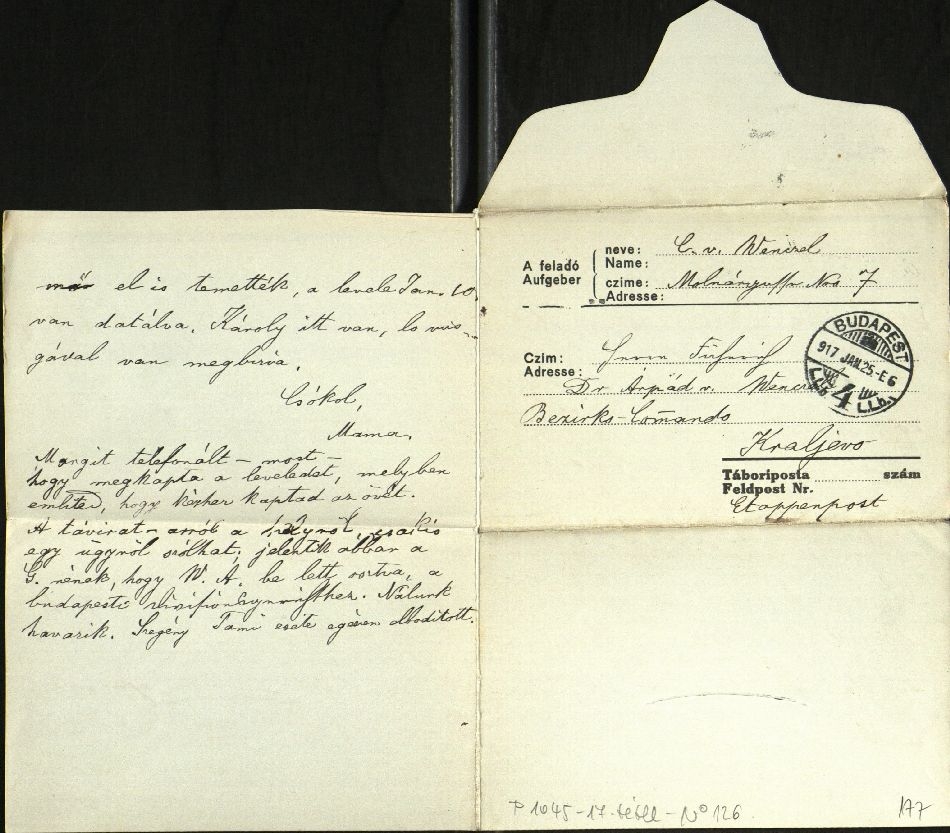 már el is temették, a levele Jan. 10.
van datálva. Károly itt van, lo vus-
gával van megbiria.
Csókol,
Mama.
Margit telefonált – most –
hogy megkapta a leveledet, melyben
emlited, hogy kézhez kaptad az övét.
A távirat arról a
egy ügyről szólhat; jelentik abban a
G. nének, hogy W. A. be lett osztva, a
budapesti
Nálunk
havazik. Szegény Tami esete egészen elbódított.
A feladó
Aufgeber
neve:
Name:
C. v. Wenczel
czime:
Adresse:
Molnárgasse Nro 7
BUDAPEST
917 JAN. 25 - E 6
4
Czim:
Adresse:
Herrn
Dr Árpád v. Wenczel
Bezirks-Comando
Kraljevo
Táboriposta szám
Feldpost Nr.
Etappenpost
P 1045 - 17. tétel - No 126
177